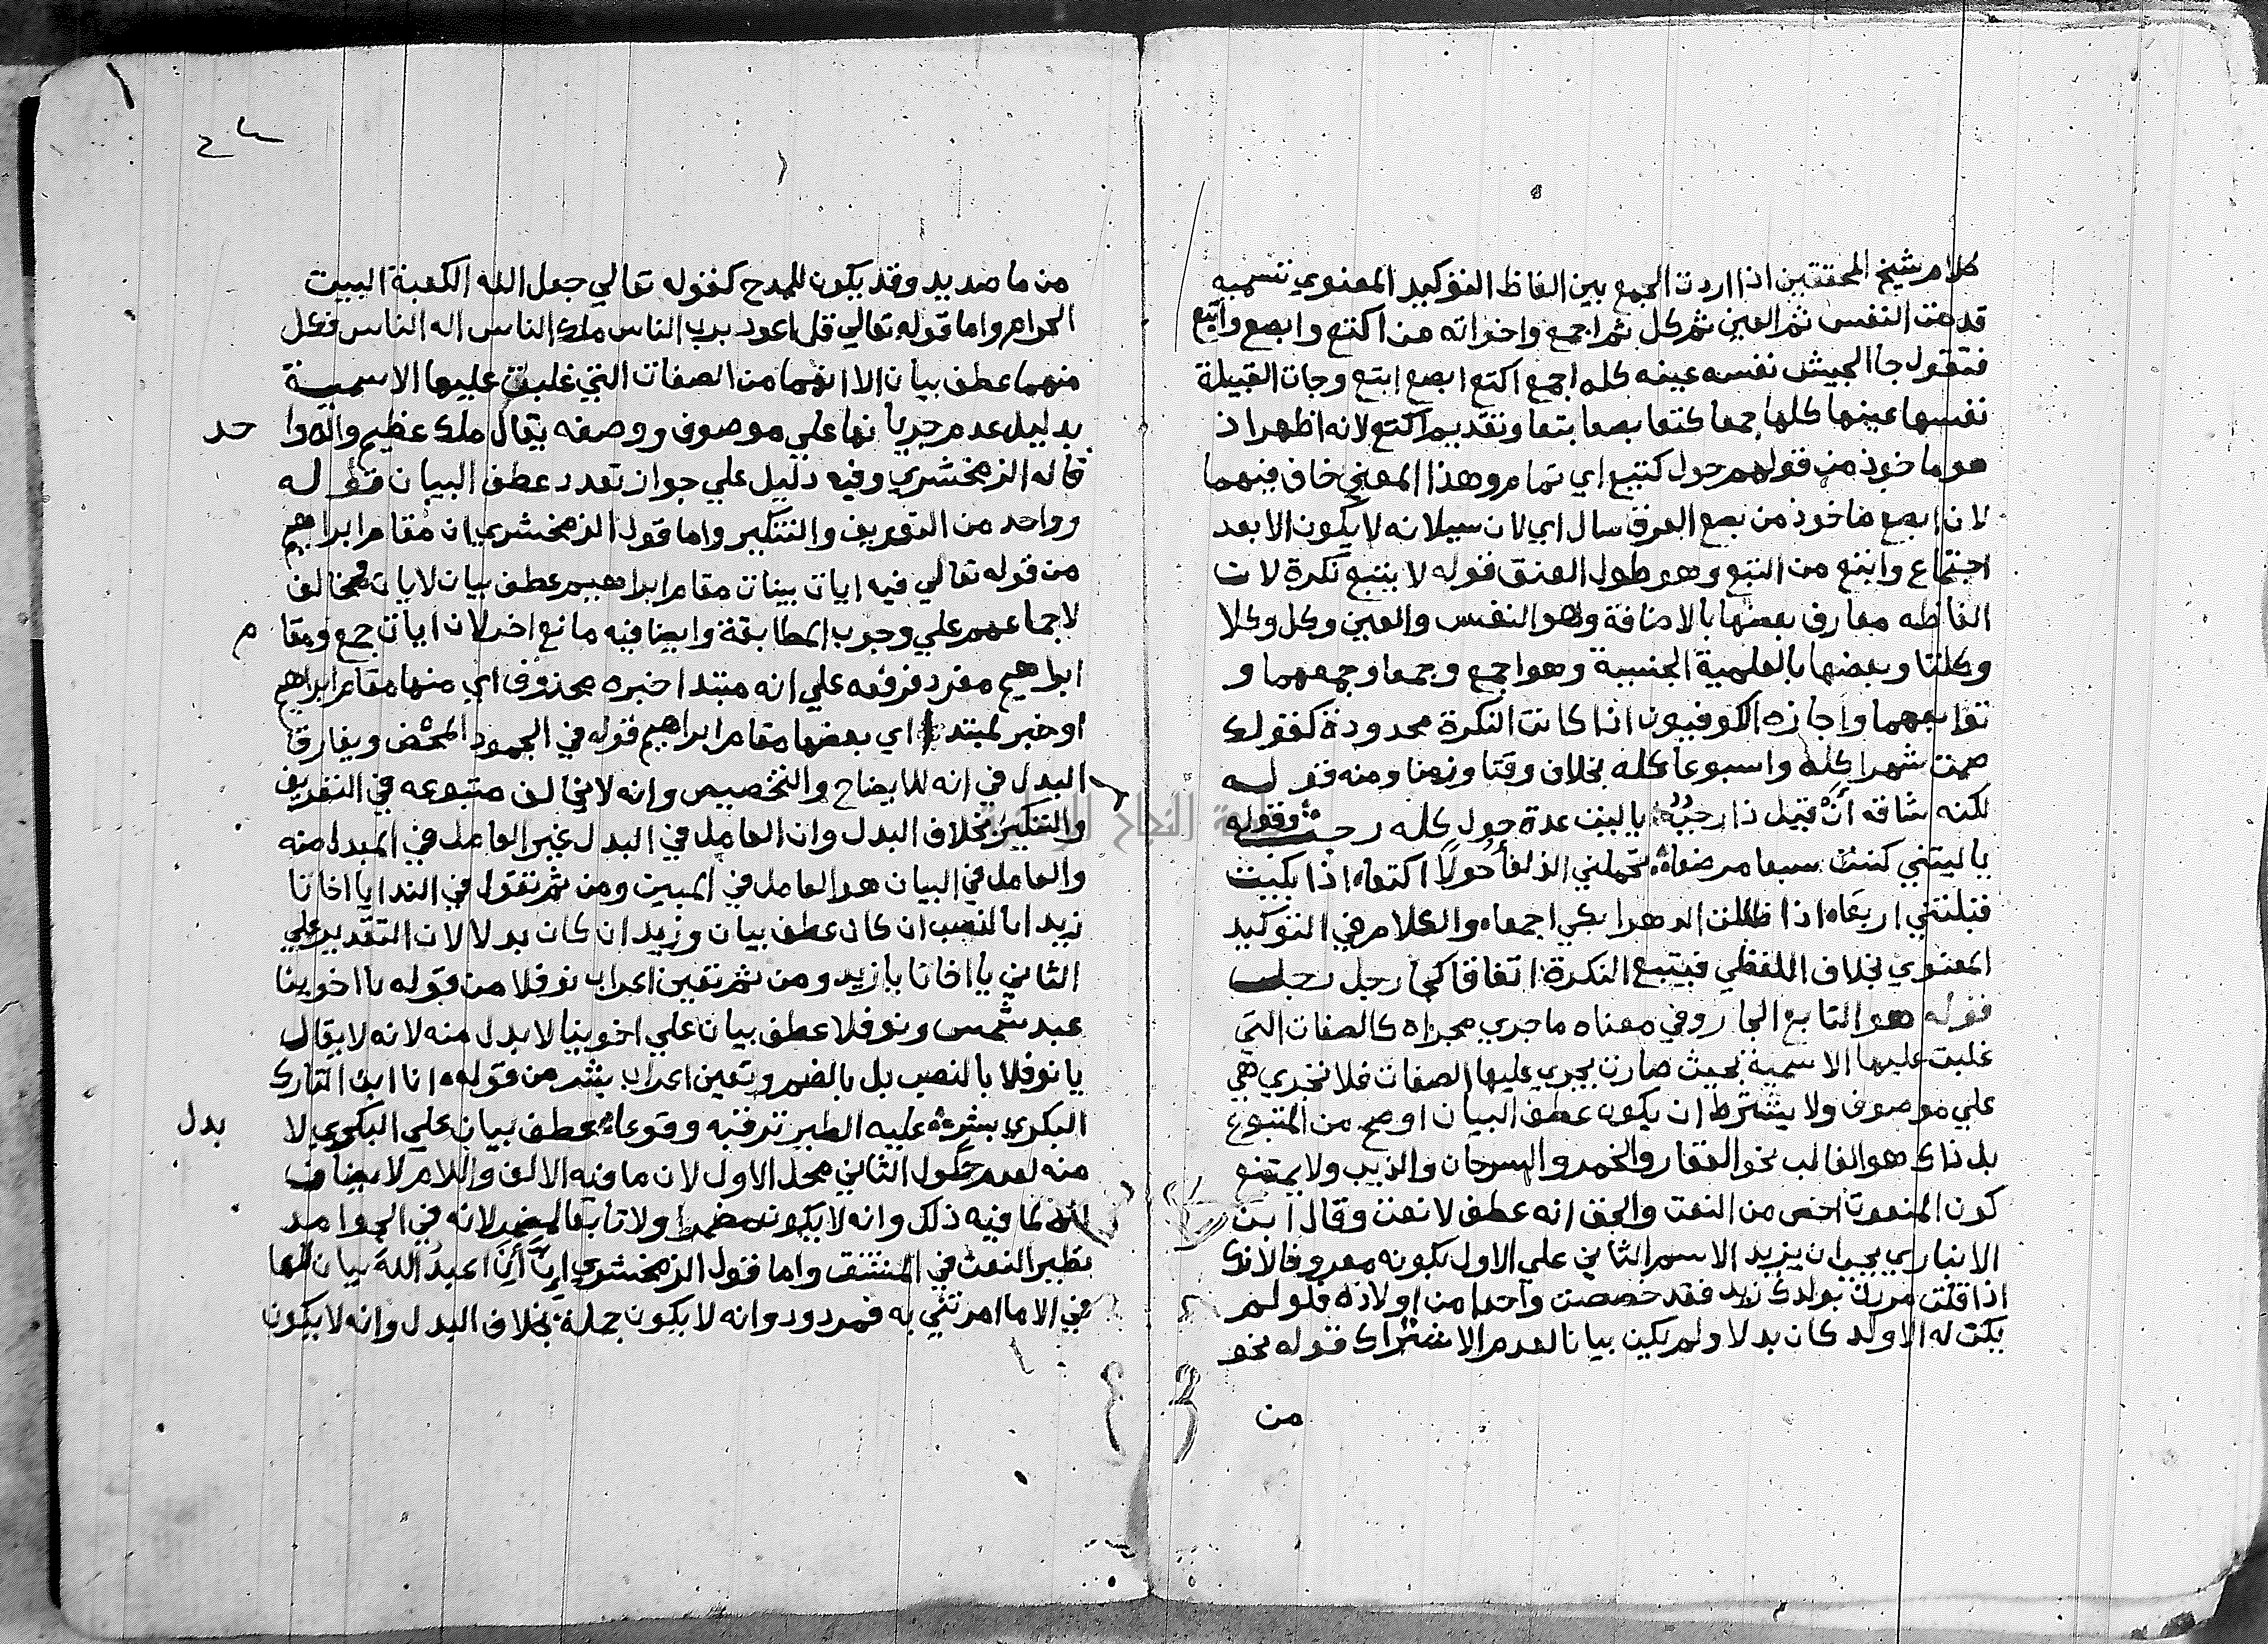 كلام شيخ المحققين اذا اردت الجمع بين الفاظ التوكيد المعنوي
قدمت النفس ثم العين ثم كل ثم اجمع واخواته من اكتع وابصع وابتع
فتقول جا الجيش نفسه عينه كله اجمع اكتع ابصع ابتع وجات القبيلة
نفسها عينها كلها جمعا كتعا بصعا بتعا وتقديم اكتع لانه اظهر اذ
هو ماخوذ من قولهم حول كتيع اي تمام وهذا المعني خاف فيهما
لان ابصع ماخوذ من بصع العرق سال اي لان سيلانه لا يكون الا بعد
اجتماع وابتع من البتع وهو طول العنق قوله لا يتبع نكرة لان
الفاظه معارف بعضها بالاضافة وهو النفس والعين وكل وكلا
وكلتا وبعضها بالعلمية الجنسية وهو اجمع وجمعا وجمعهما و
توابعهما واجازه الكوفيون اذا كانت النكرة محدودة كقولك
صمت شهرا كله واسبوعا كله بخلاف وقتا وزمنا ومنه قوله
لكنه شاقه ان قيل ذا رجب يا ليت عدة حول كله رجب وقوله
يا ليتني كنت صبيا مرضعا تحملني الذلفا حولا اكتعا اذا بكيت
قبلتني اربعا اذا ظللت الدهر ابكي اجمعا والكلام في التوكيد
المعنوي بخلاف اللفظي فيتبع النكرة اتفاقا كجا رجل رجل
قوله هو التابع الجاري في معناه ما جري مجراه كالصفات التي
غلبت عليها الاسمية بحيث صارت يجري عليها الصفات فلا تجري هي
علي موصوف ولا يشترط ان يكون عطف البيان اوضح من المتبوع
بل ذاك هو الغالب نحو العقار والخمر والسرحان والذيب ولا يمتنع
كون المنعوت اخص من النعت والحق انه عطف لا نعت وقال ابن
الانباري يجب ان يزيد الاسم الثاني علي الاول بكونه معروفا لانك
اذا قلت مررت بولدك زيد فقد خصصت واحدا من اولاده فلو لم
يكن له الا ولد كان بدلا ولم يكن بيانا لعدم الاشتراك قوله نحو
من
من ما صديد وقد يكون للمدح كقوله تعالي جعل الله الكعبة البيت
الحرام واما قوله تعالي قل اعوذ برب الناس ملك الناس اله الناس فكل
منهما عطف بيان الا انهما من الصفات التي غلبت عليها الاسمية
بدليل عدم جريانها علي موصوف ووصفه يقال ملك عظيم واله واحد
قاله الزمخشري وفيه دليل علي جواز تعدد عطف البيان قوله
وواحد من التعريف والتنكير واما قول الزمخشري ان مقام ابراهيم
من قوله تعالي فيه ايات بينات مقام ابراهيم عطف بيان لايات فمخالف
لاجماعهم علي وجوب المطابقة وايضا فيه مانع اخر لان ايات جمع ومقام
ابراهيم مفرد فرفعه علي انه مبتدا خبره محذوف اي منها مقام ابراهيم
او خبر لمبتدا اي بعضها مقام ابراهيم قوله في الجمود المحض ويفارق
البدل في انه للايضاح والتخصيص وانه لا يخالف متبوعه في التعريف
والتنكير بخلاف البدل وان العامل في البدل غير العامل في المبدل منه
والعامل في البيان هو العامل في المبين ومن ثم تقول في الندا يا اخانا
زيدا بالنصب ان كان عطف بيان وزيد ان كان بدلا لان التقدير علي
الثاني يا اخانا يا زيد ومن ثم تعين اعراب نوفلا من قوله يا اخوينا
عبد شمس ونوفلا عطف بيان علي اخوينا لا بدل منه لانه لا يقال
يا نوفلا بالنصب بل بالضم وتعين اعراب بشر من قوله انا ابن التارك
البكري بشر عليه الطير ترقبه وقوعا عطف بيان علي البكري لا بدل
منه لعدم حلول الثاني محل الاول لان ما فيه الالف واللام لا يضاف
الا لما فيه ذلك وانه لا يكون مضمرا ولا تابعا لمضمر لانه في الجوامد
نظير النعت في المشتق واما قول الزمخشري ان ان اعبدوا الله بيان للها
في الا ما امرتني به فمردود وانه لا يكون جملة بخلاف البدل وانه لا يكون